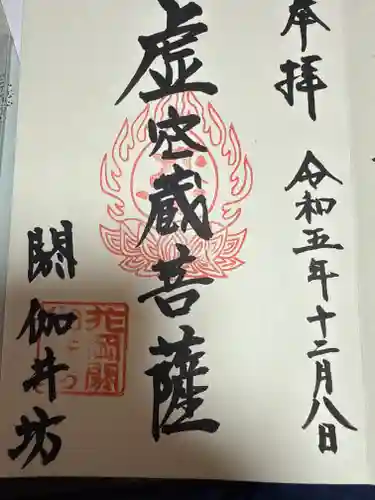 奉拝
令和五年十二月八日
虚空蔵菩薩
閼伽井坊